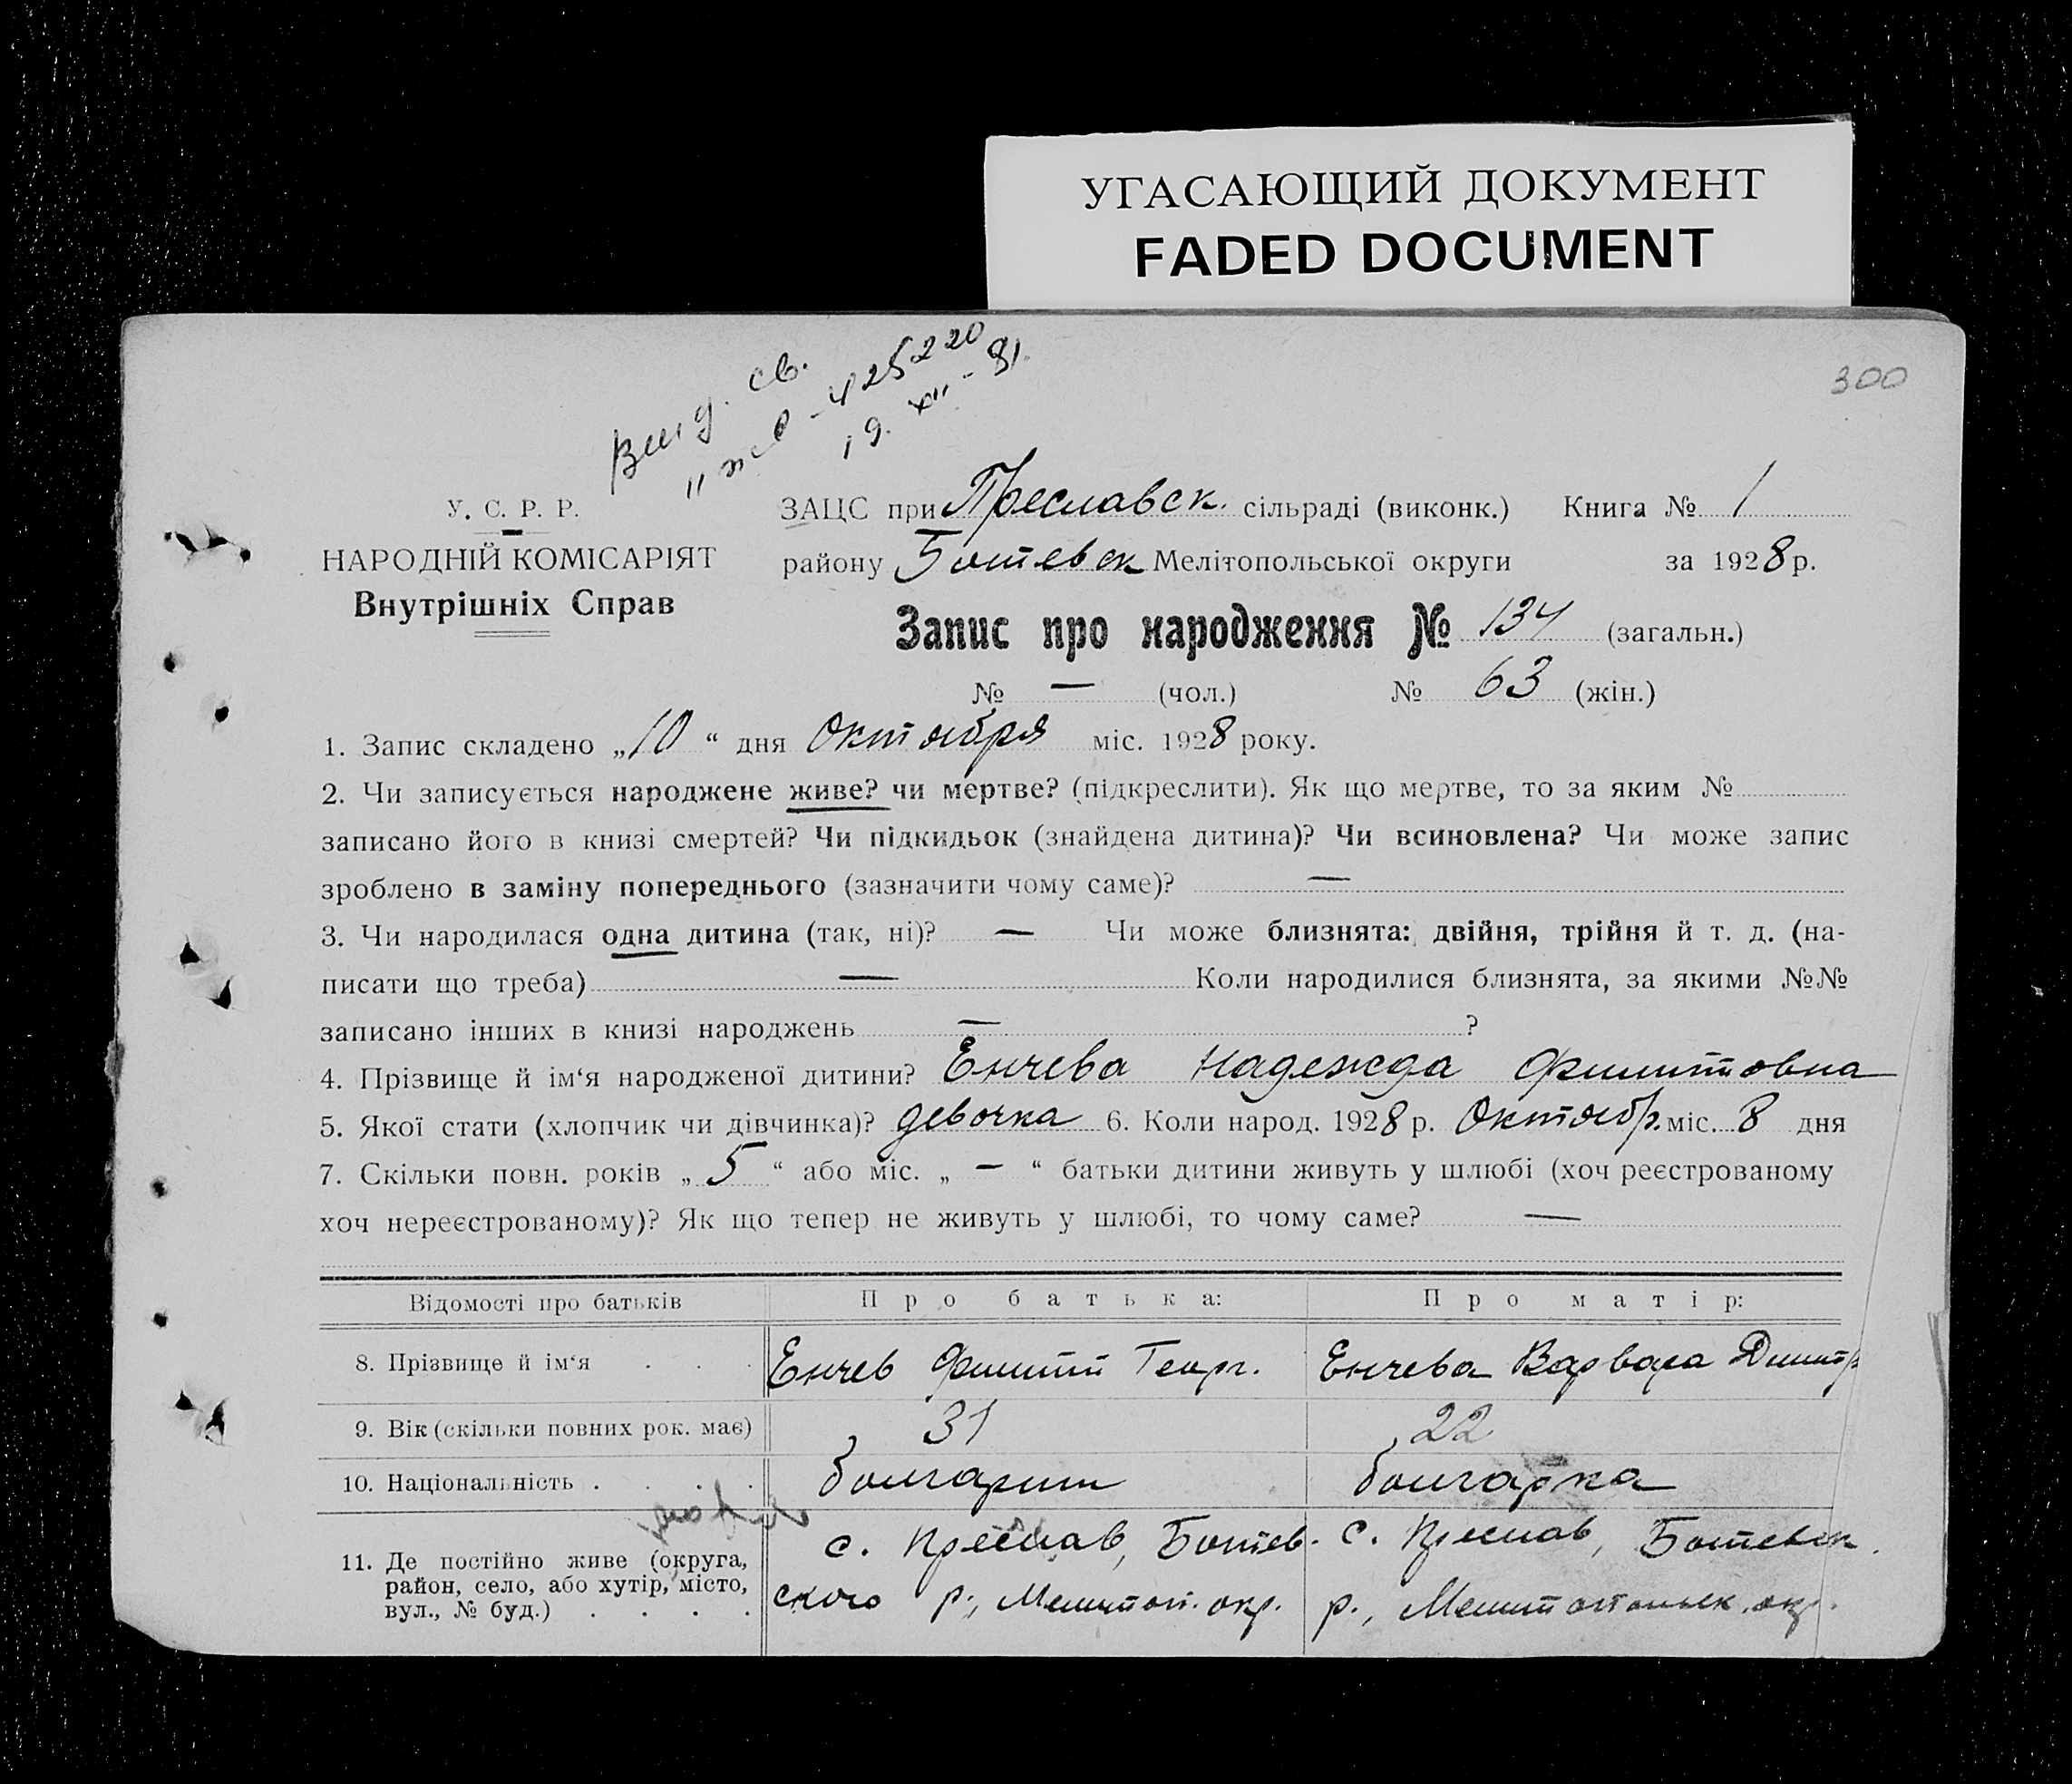 УГАСАЮЩИЙ ДОКУМЕНТ
FADED DOCUMENT
300
Выд. св.
425220
19. XII - 81.
У. С. Р. Р.
НАРОДНІЙ КОМІСАРІЯТ
Внутрішніх Справ
ЗАЦС при Преславск. сільраді (виконк.) Книга № 1
району Ботевск Мелітопольської округи за 1928 р.
Запис про народження № 134 (загальн.)
№ — (чол.) № 63 (жін.)
1. Запис складено „10“ дня Октября міс. 1928 року.
2. Чи записується народжене живе? чи мертве? (підкреслити). Як що мертве, то за яким №
записано його в книзі смертей? Чи підкидьок (знайдена дитина)? Чи всиновлена? Чи може запис
зроблено в заміну попереднього (зазначити чому саме)? —
3. Чи народилася одна дитина (так, ні)? — Чи може близнята: двійня, трійня й т. д. (на-
писати що треба) — Коли народилися близнята, за якими №№
записано інших в книзі народжень — ?
4. Прізвище й ім‘я народженої дитини? Енчева Надежда Филипповна
5. Якої стати (хлопчик чи дівчинка)? девочка 6. Коли народ. 1928 р. Октябр. міс. 8 дня
7. Скільки повн. років „5“ або міс. „—“ батьки дитини живуть у шлюбі (хоч реєстрованому
хоч нереєстрованому)? Як що тепер не живуть у шлюбі, то чому саме? —
Відомості про батьків Про батька: Про матір:
8. Прізвище й ім‘я . . . Енчев Филипп Георг. Енчева Варвара Димитр
9. Вік (скільки повних рок. має) 31 22
10. Національність . . . . болгарин болгарка
11. Де постійно живе (округа, район, село, або хутір, місто, вул., № буд.) . . . . с. Преслав, Ботев- с. Преслав, Ботевск.
ского р., Мелитоп. окр. р., Мелитопольск. окр.